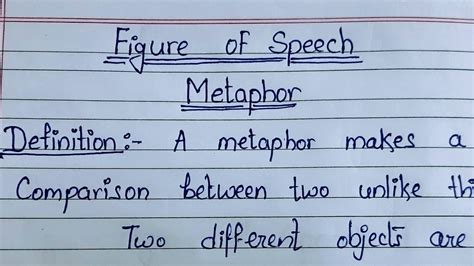 Figure of Speech
Metaphor
Definition:- A metaphor makes a
Comparison between two unlike thi
Two different objects are